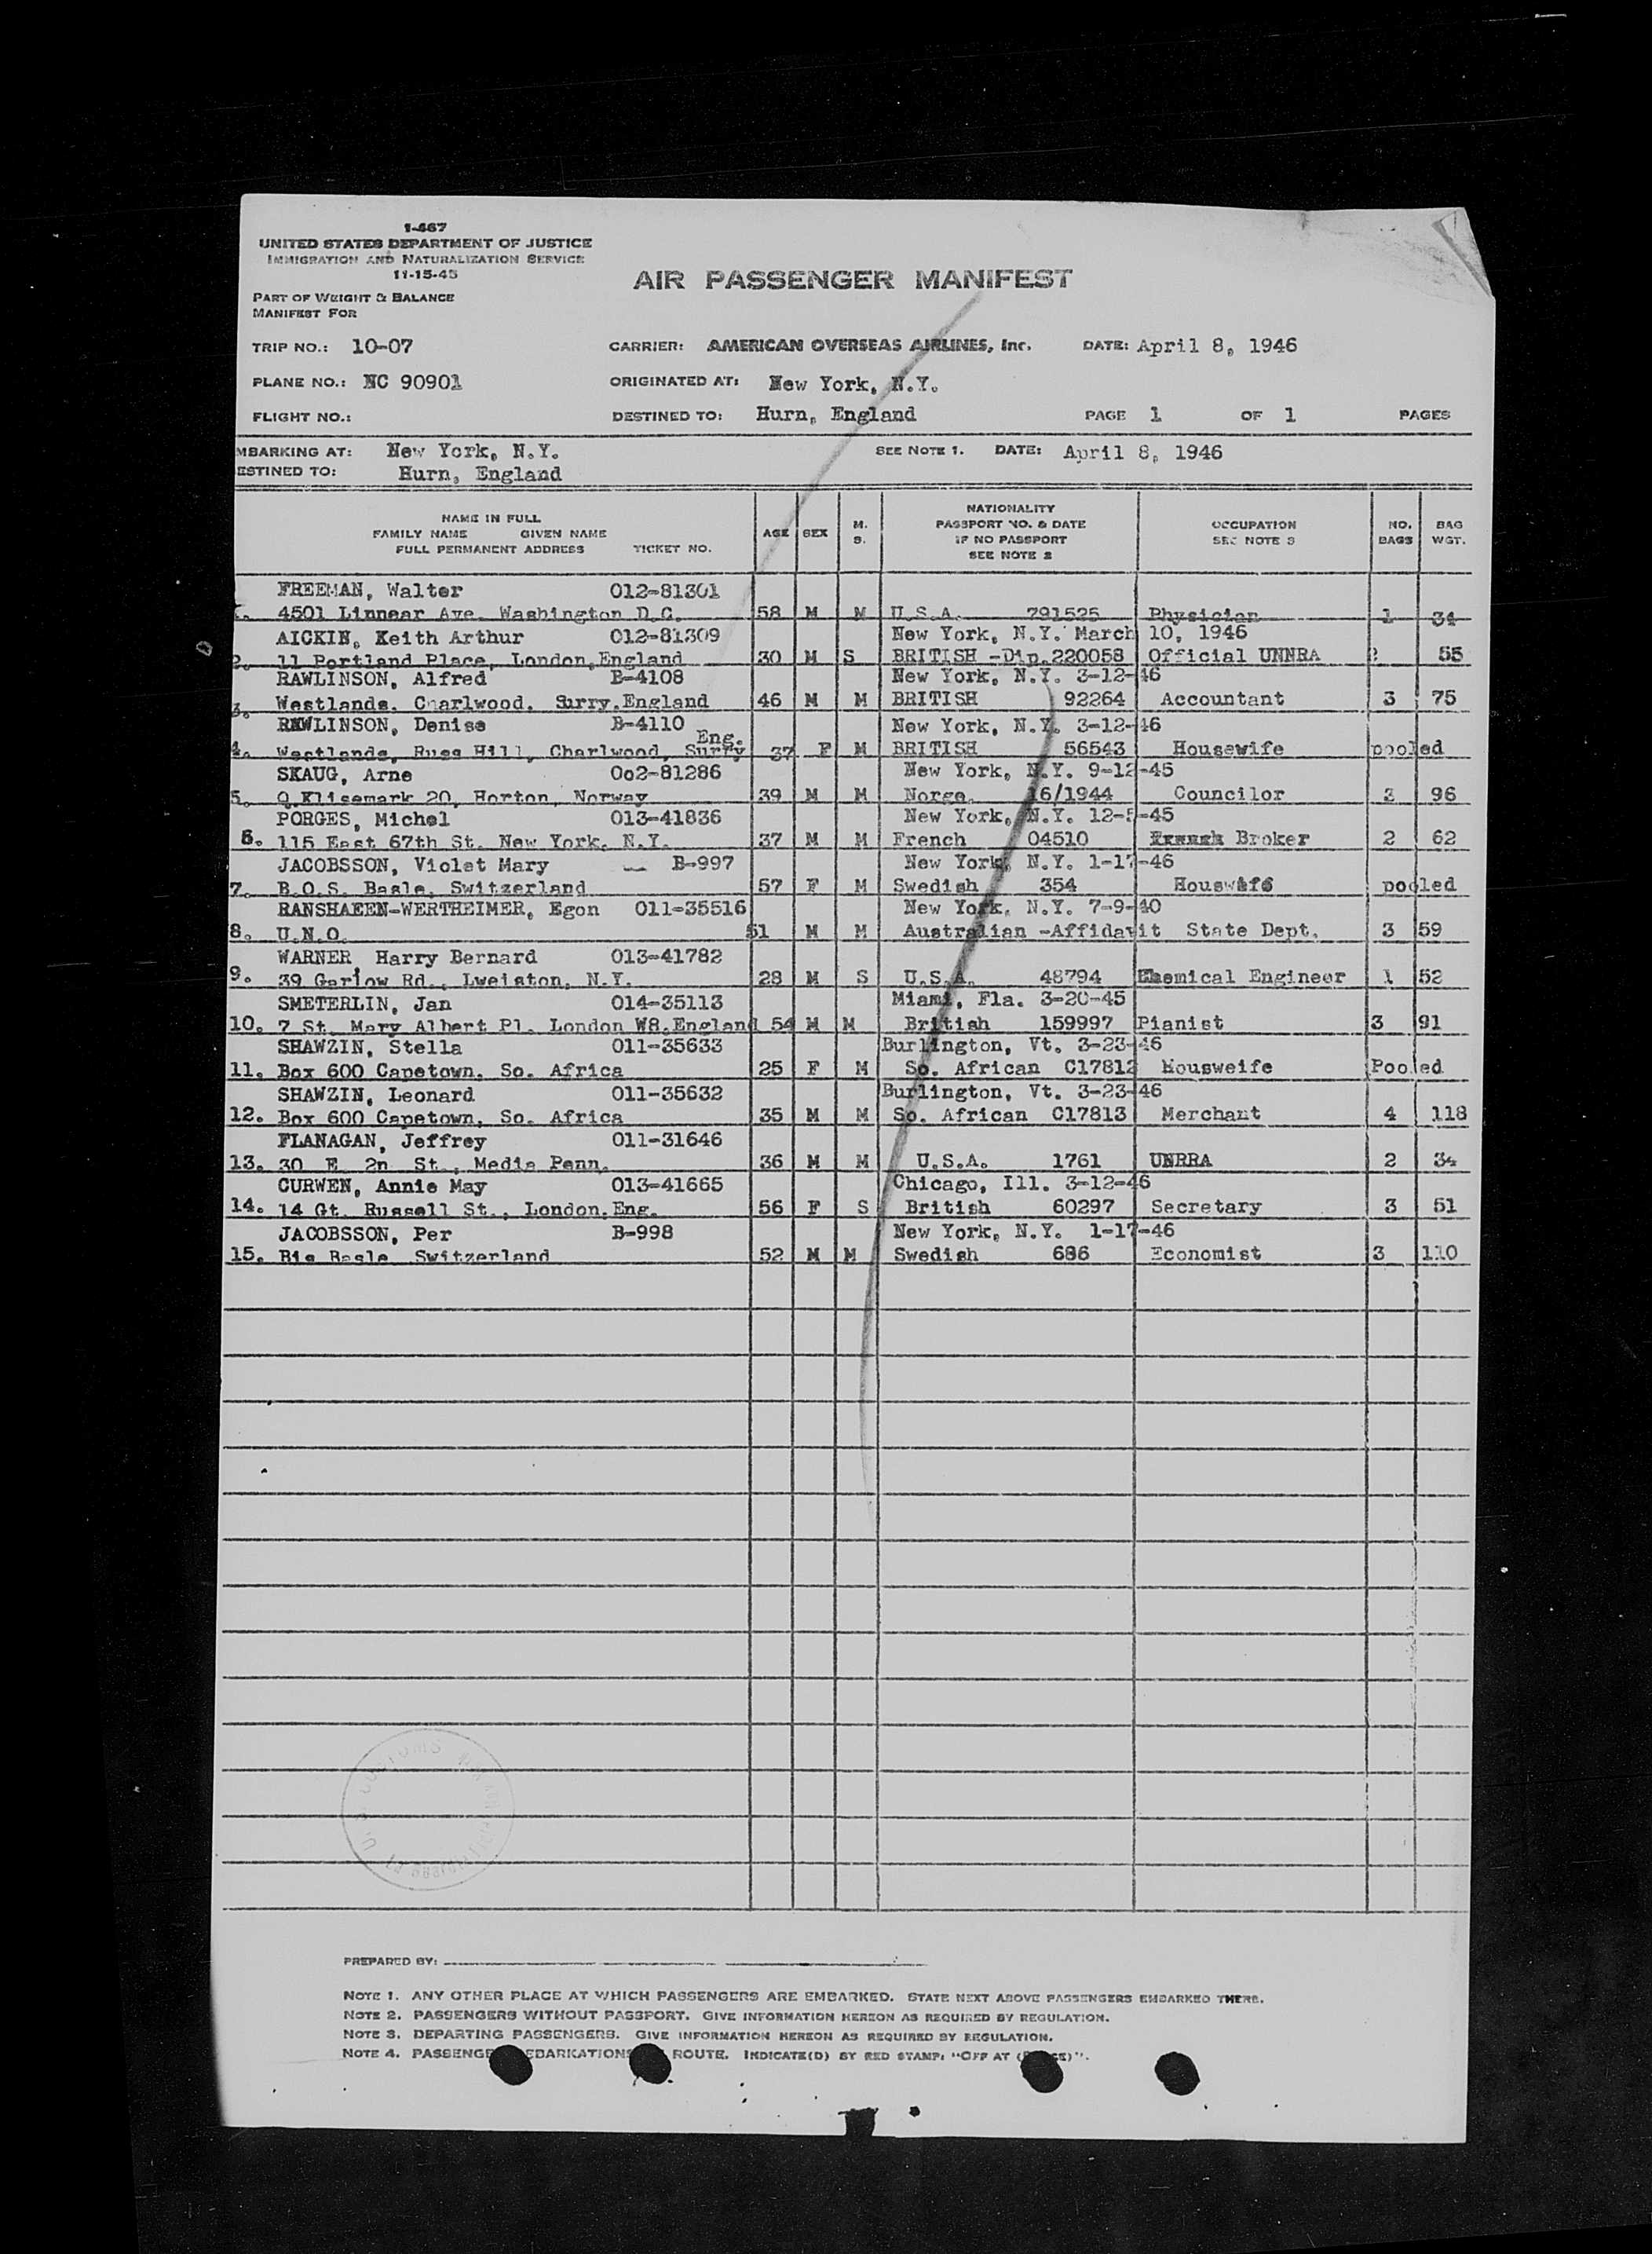 1-467
UNITED STATES DEPARTMENT OF JUSTICE
IMMIGRATION AND NATURALIZATION SERVICE
11-15-45
AIR PASSENGER MANIFEST
PART OF WEIGHT & BALANCE
MANIFEST FOR
TRIP NO.: 10-07 CARRIER: AMERICAN OVERSEAS AIRLINES, Inc. DATE: April 8, 1946
PLANE NO.: NC 90901 ORIGINATED AT: New York, N.Y.
FLIGHT NO.: DESTINED TO: Hurn, England PAGE 1 OF 1 PAGES
MBARKING AT: New York, N.Y. SEE NOTE 1. DATE: April 8, 1946
ESTINED TO: Hurn, England
NAME IN FULL
FAMILY NAME GIVEN NAME
FULL PERMANENT ADDRESS TICKET NO. AGE SEX M. S. NATIONALITY PASSPORT NO. & DATE IF NO PASSPORT SEE NOTE 2 OCCUPATION SEE NOTE 3 NO. BAGS BAG WGT.
FREEMAN, Walter 012-81301
4501 Linnear Ave. Washington D.C. 58 M M U.S.A. 791525 Physician 1 34
AICKIN, Keith Arthur 012-81309 New York, N.Y. March 10, 1946
2. 11 Portland Place, London,England 30 M S BRITISH -Dip.220058 Official UNNRA 2 55
RAWLINSON, Alfred B-4108 New York, N.Y. 3-12-46
3. Westlands. Charlwood. Surry.England 46 M M BRITISH 92264 Accountant 3 75
RAWLINSON, Denise B-4110 New York, N.Y. 3-12-46
4. Westlands, Russ Hill, Charlwood, Surry Eng. 37 F M BRITISH 56543 Housewife pooled
SKAUG, Arne 0o2-81286 New York, N.Y. 9-12-45
5. O.Klisemark 20, Horton, Norway 39 M M Norge. 16/1944 Councilor 3 96
PORGES, Michel 013-41836 New York, N.Y. 12-5-45
6. 115 East 67th St. New York. N.Y. 37 M M French 04510 Broker 2 62
JACOBSSON, Violet Mary B-997 New York, N.Y. 1-17-46
7. B.O.S. Basle, Switzerland 57 F M Swedish 354 Houswife pooled
RANSHAEEN-WERTHEIMER, Egon 011-35516 New York, N.Y. 7-9-40
8. U.N.O. 51 M M Australian -Affidavit State Dept. 3 59
WARNER Harry Bernard 013-41782
9. 39 Garlow Rd., Lweiston, N.Y. 28 M S U.S.A. 48794 Chemical Engineer 1 52
SMETERLIN, Jan 014-35113 Miami, Fla. 3-20-45
10. 7 St. Mary Albert Pl. London W8.England 54 M M British 159997 Pianist 3 91
SHAWZIN, Stella 011-35633 Burlington, Vt. 3-23-46
11. Box 600 Capetown, So. Africa 25 F M So. African C17812 Housweife Pooled
SHAWZIN, Leonard 011-35632 Burlington, Vt. 3-23-46
12. Box 600 Capetown, So. Africa 35 M M So. African C17813 Merchant 4 118
FLANAGAN, Jeffrey 011-31646
13. 30 E 2n St., Media Penn. 36 M M U.S.A. 1761 UNRRA 2 34
CURWEN, Annie May 013-41665 Chicago, Ill. 3-12-46
14. 14 Gt. Russell St., London.Eng. 56 F S British 60297 Secretary 3 51
JACOBSSON, Per B-998 New York, N.Y. 1-17-46
15. Bis Basle, Switzerland 52 M M Swedish 686 Economist 3 110
U.S. CUSTOMS
PREPARED BY:
NOTE 1. ANY OTHER PLACE AT WHICH PASSENGERS ARE EMBARKED. STATE NEXT ABOVE PASSENGERS EMBARKED THERE.
NOTE 2. PASSENGERS WITHOUT PASSPORT. GIVE INFORMATION HEREON AS REQUIRED BY REGULATION.
NOTE 3. DEPARTING PASSENGERS. GIVE INFORMATION HEREON AS REQUIRED BY REGULATION.
NOTE 4. ROUTE. INDICATE(D) BY RED STAMP: "OFF AT